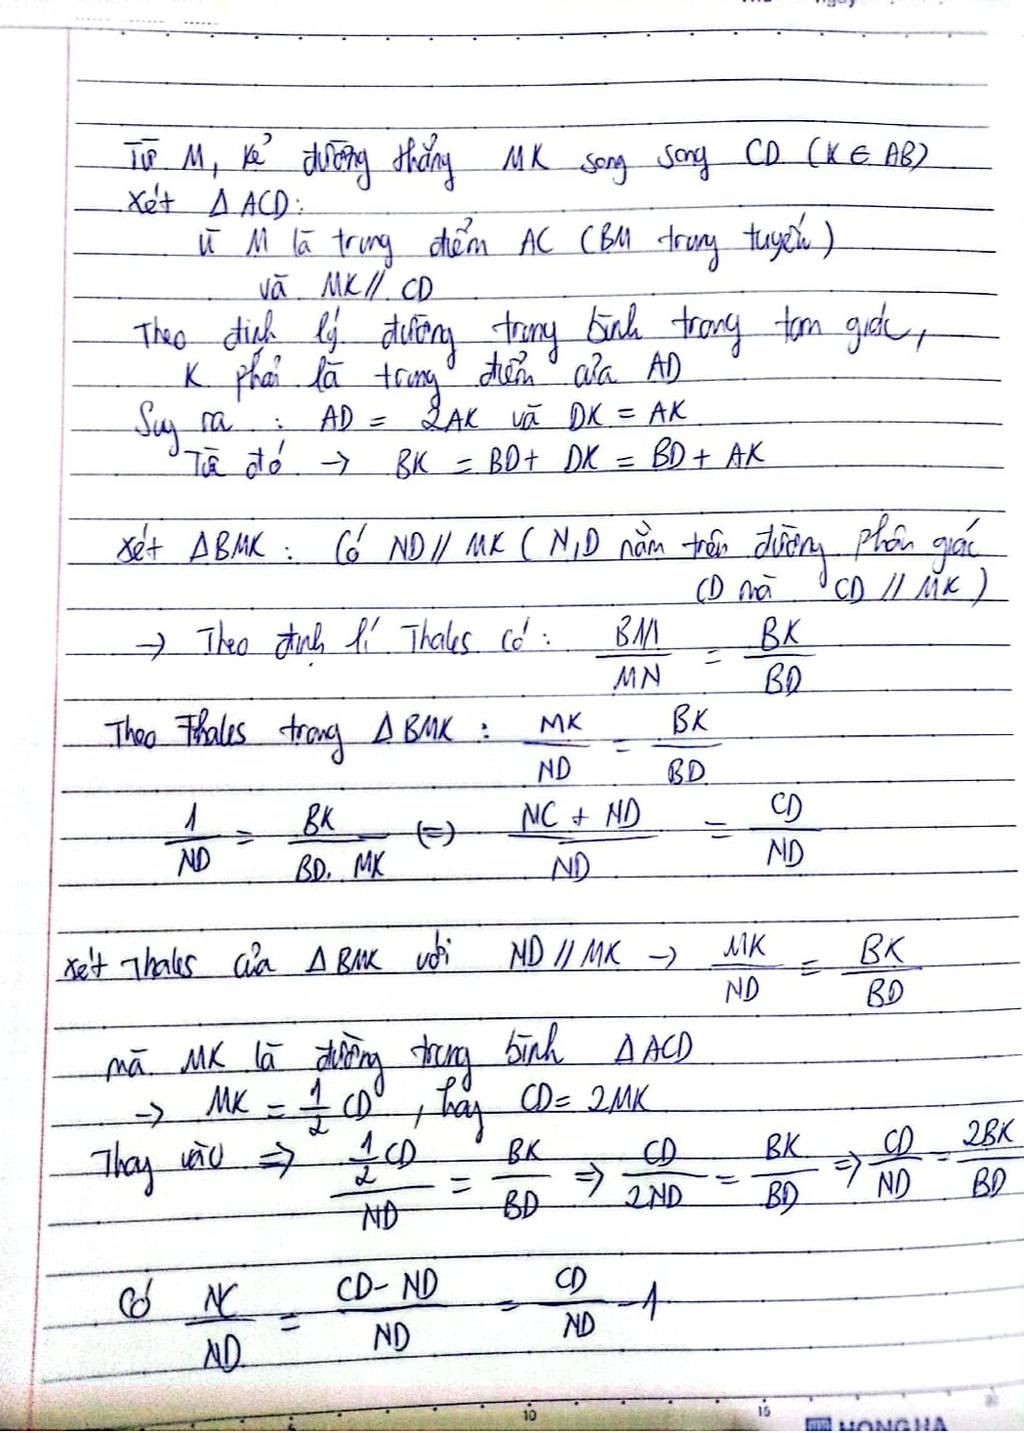 Từ M, kẻ đường thẳng MK song song CD (K ∈ AB)
Xét Δ ACD:
Vì M là trung điểm AC (BM trung tuyến)
và MK // CD
Theo định lý đường trung bình trong tam giác,
K phải là trung điểm của AD
Suy ra : AD = 2AK và DK = AK
Từ đó → BK = BD + DK = BD + AK
Xét ΔBMK : Có ND // MK ( N, D nằm trên đường phân giác
CD mà CD // MK )
→ Theo định lí Thales có : BM/MN = BK/BD
Theo Thales trong Δ BMK : MK/ND = BK/BD
1/ND = BK/BD. MK (=) NC + ND/ND = CD/ND
Xét Thales của Δ BMK với ND // MK → MK/ND = BK/BD
mà MK là đường trung bình Δ ACD
→ MK = 1/2 CD , hay CD = 2MK
Thay vào ⇒ 1/2 CD/ND = BK/BD ⇒ CD/2ND = BK/BD ⇒ CD/ND = 2BK/BD
Có NC/ND = CD - ND/ND = CD/ND - 1
10 15
HONG HA